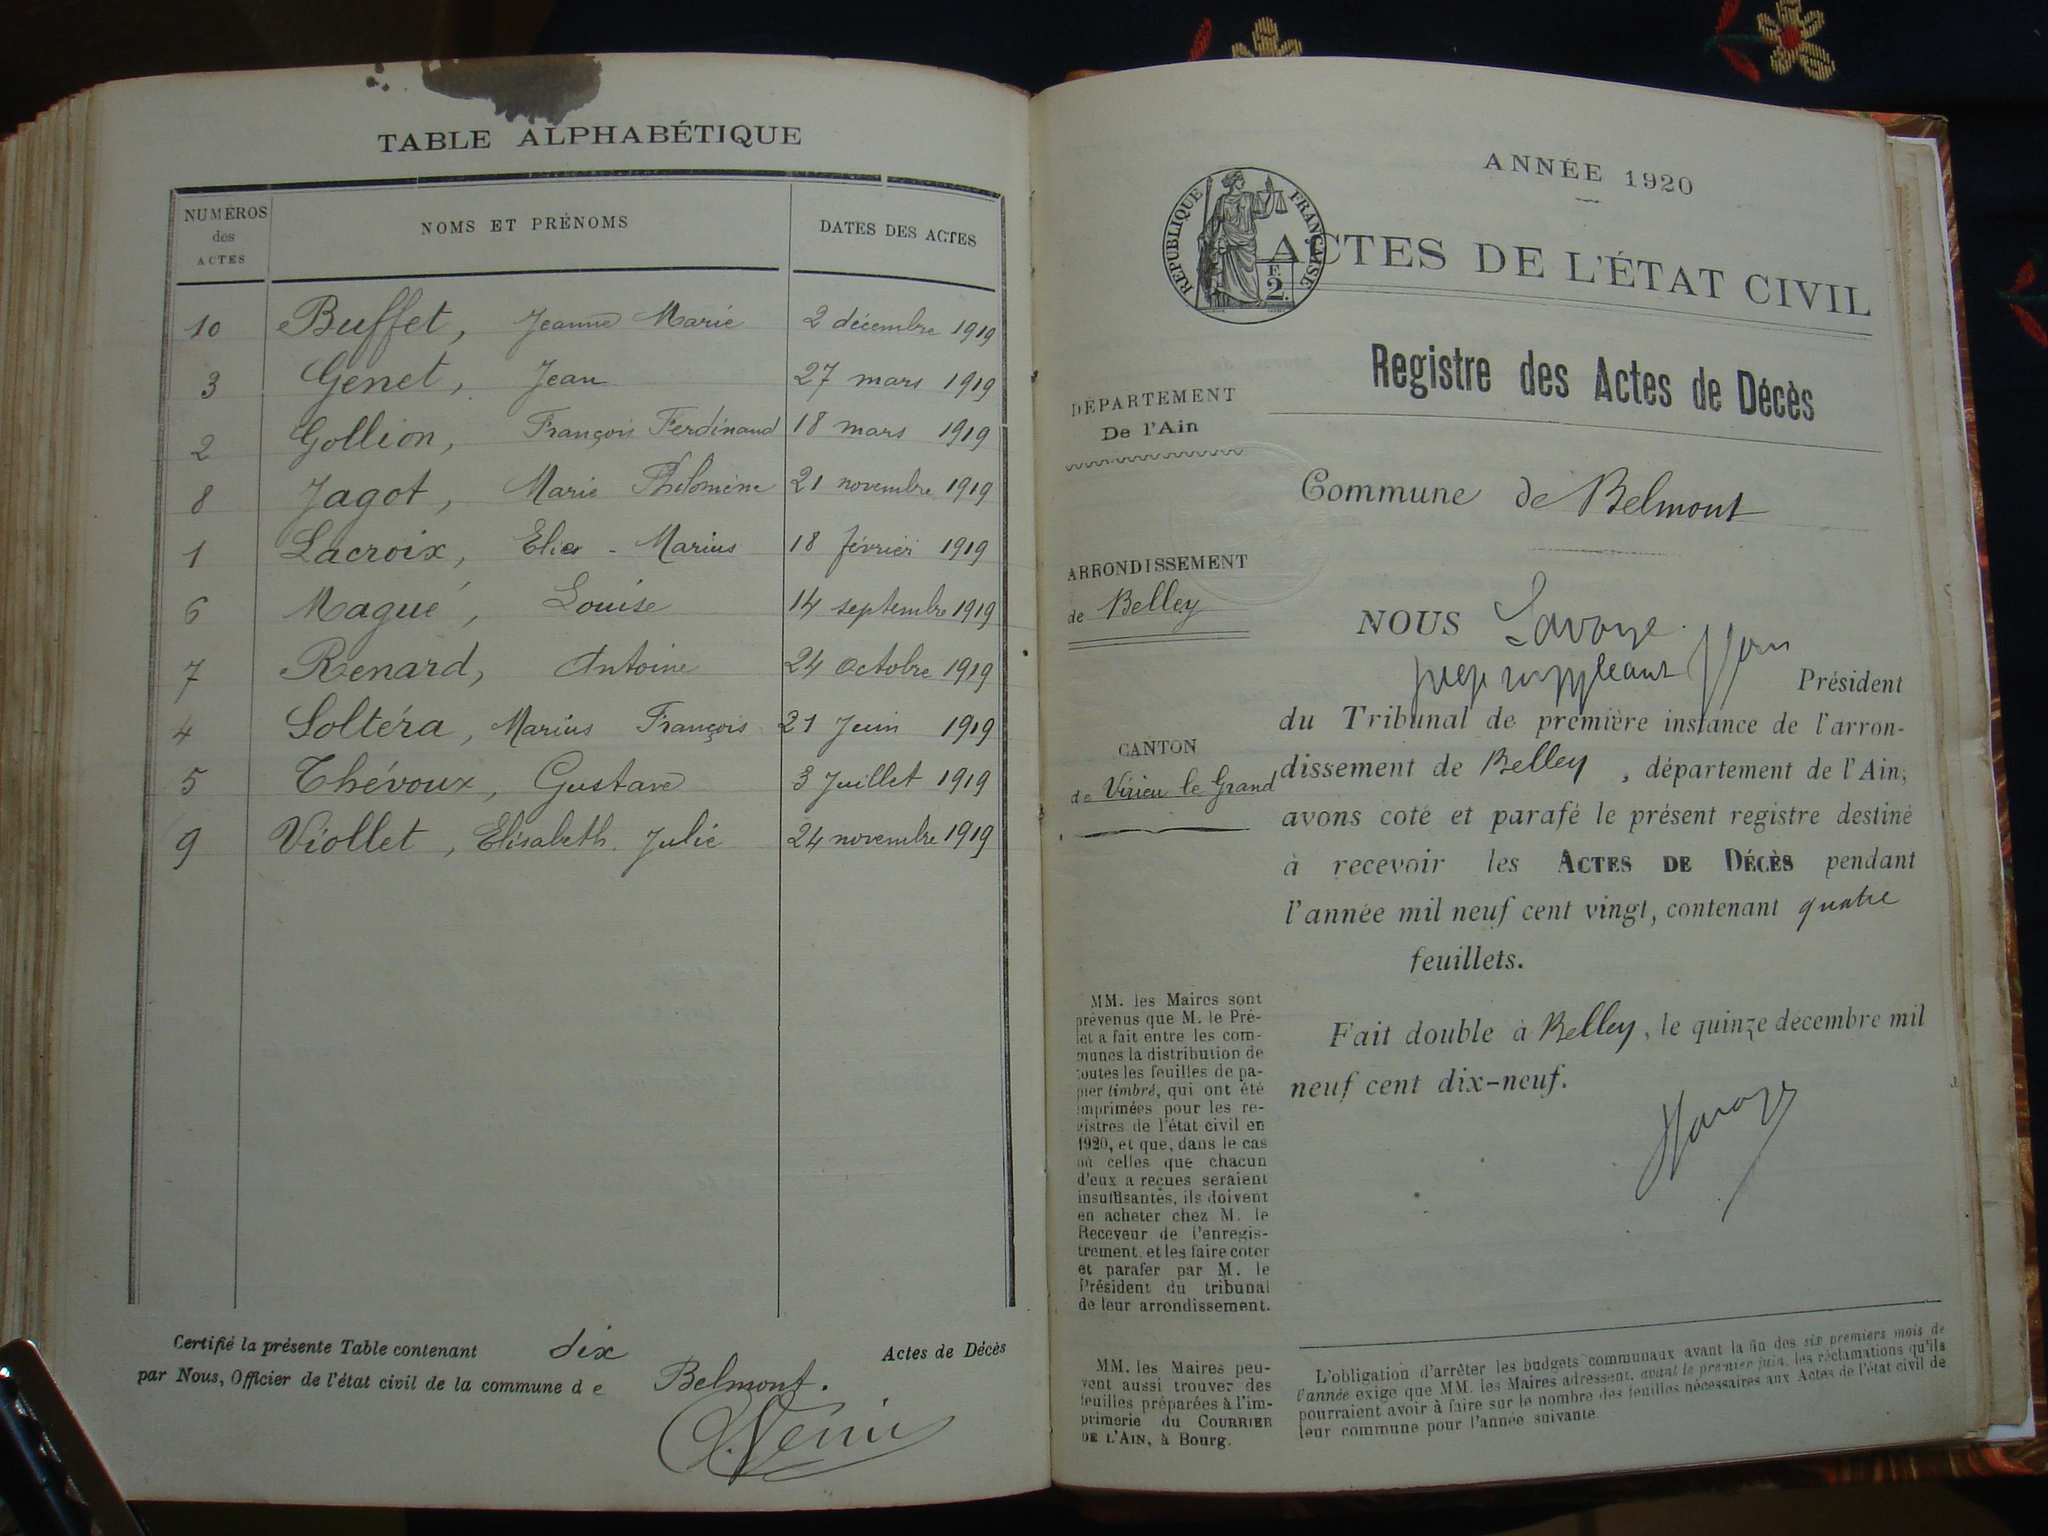 TABLE ALPHABÉTIQUE
NUMÉROS
des
ACTES
NOMS ET PRÉNOMS
DATES DES ACTES
10 Buffet, Jeanne Marie 2 décembre 1919
3 Genet, Jean 27 mars 1919
2 Gollion, François Ferdinand 18 mars 1919
8 Jagot, Marie Philomène 21 novembre 1919
1 Lacroix, Elie - Marius 18 février 1919
6 Magué, Louise 14 septembre 1919
7 Renard, Antoine 24 octobre 1919
4 Soltéra, Marius François 21 Juin 1919
5 Thévoux, Gustave 3 Juillet 1919
9 Viollet, Elisabeth Julie 24 novembre 1919
Certifié la présente Table contenant dix Actes de Décès
par Nous, Officier de l'état civil de la commune de Belmont.
ANNÉE 1920
RÉPUBLIQUE FRANÇAISE
F.
2.
ACTES DE L'ÉTAT CIVIL
Registre des Actes de Décès
DÉPARTEMENT
De l'Ain
Commune de Belmont
ARRONDISSEMENT
de Belley
CANTON
de Virieu le Grand
NOUS Savoye
juge suppléant
Président
du Tribunal de première instance de l'arron-
dissement de Belley, département de l'Ain,
avons coté et parafé le présent registre destiné
à recevoir les ACTES DE DÉCÈS pendant
l'année mil neuf cent vingt, contenant quatre
feuillets.
Fait double à Belley, le quinze décembre mil
neuf cent dix-neuf.
MM. les Maires sont
prévenus que M. le Pré-
fet a fait entre les com-
munes la distribution de
toutes les feuilles de pa-
pier timbré, qui ont été
imprimées pour les re-
gistres de l'état civil en
1920, et que, dans le cas
où celles que chacun
d'eux a reçues seraient
insuffisantes, ils doivent
en acheter chez M. le
Receveur de l'enregis-
trement, et les faire coter
et parafer par M. le
Président du tribunal
de leur arrondissement.
MM. les Maires peu-
vent aussi trouver des
feuilles préparées à l'im-
primerie du COURRIER
DE L'AIN, à Bourg.
L'obligation d'arrêter les budgets communaux avant la fin des six premiers mois de
l'année exige que MM. les Maires adressent, avant le premier juin, les réclamations qu'ils
pourraient avoir à faire sur le nombre des feuilles nécessaires aux Actes de l'état civil de
leur commune pour l'année suivante.